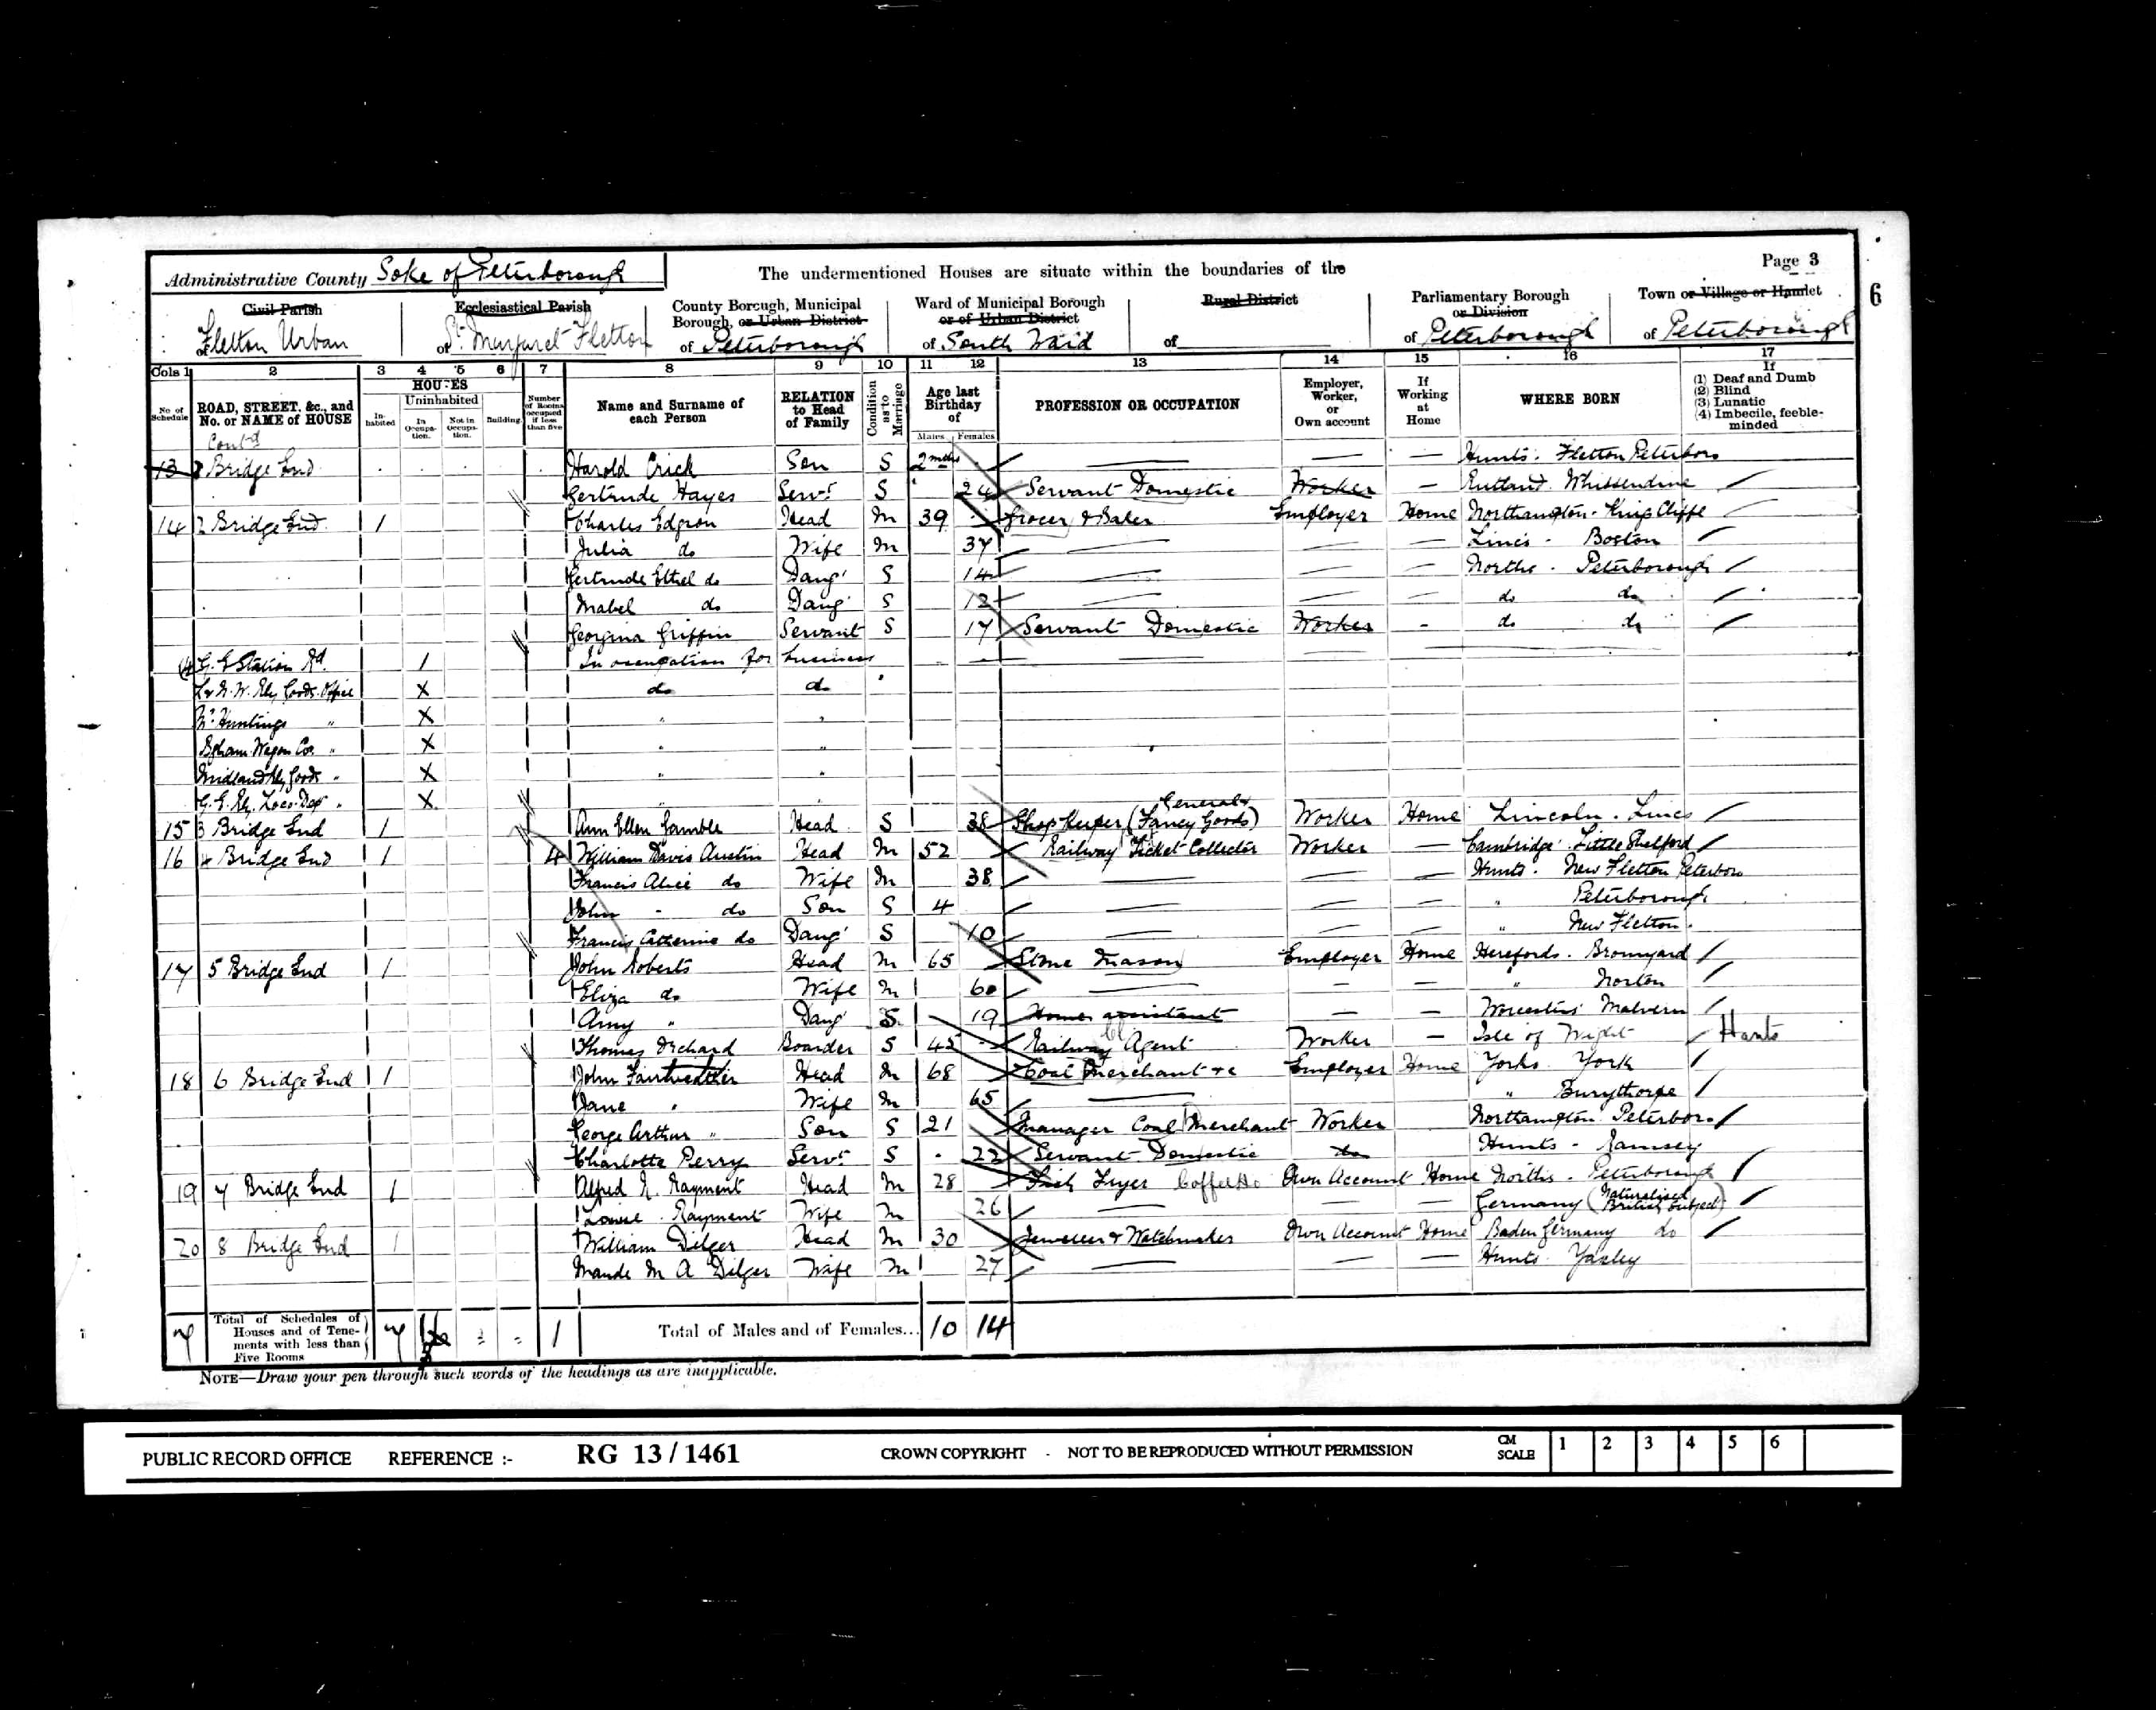 Administrative County Soke of Peterborough
The undermentioned Houses are situate within the boundaries of the
Page 3
6
Civil Parish
of Fletton Urban
Ecclesiastical Parish
of St. Margaret Fletton
County Borough, Municipal
Borough, or Urban District
of Peterborough
Ward of Municipal Borough
or of Urban District
of South Ward
Rural District
of
Parliamentary Borough
or Division
of Peterborough
Town or Village or Hamlet
of Peterborough
Cols 1 2 3 4 5 6 7 8 9 10 11 12 13 14 15 16 17
No of Schedule
ROAD, STREET, &c., and No. or NAME of HOUSE
HOUSES
Inhabited
Uninhabited
In Occupation.
Not in Occupation.
Building
Number of Rooms occupied if less than five
Name and Surname of each Person
RELATION to Head of Family
Condition as to Marriage
Age last Birthday of
Males Females
PROFESSION OR OCCUPATION
Employer, Worker, or Own account
If Working at Home
WHERE BORN
If
(1) Deaf and Dumb
(2) Blind
(3) Lunatic
(4) Imbecile, feeble-minded
Contd
13 Bridge End Harold Crick Son S 2 mths Hunts. Fletton Peterboro
Gertrude Hayes Servt S 24 Servant Domestic Worker — Rutland. Whissendine
14 2 Bridge End 1 Charles Edgson Head M 39 Grocer & Baker Employer Home Northampton - Kings Cliffe
Julia do Wife M 37 — — — Lincs - Boston
Gertrude Ethel do Daug S 14 — — — Norths. Peterborough
Mabel do Daug S 12 — — — do do
Georgina Griffin Servant S 17 Servant Domestic Worker - do do
G. E Station Rd. 1 In occupation for business
L & N. W. Rly Goods Office X do do
Mr Huntings " X " "
Wagon Co. " X " "
Midland Rly Goods " X " "
G. E. Rly. Loco. Dept " X " "
15 3 Bridge End 1 Ann Ellen Gamble Head S 38 Shop Keeper (General & Fancy Goods) Worker Home Lincoln. Lincs
16 4 Bridge End 1 4 William Davis Austin Head M 52 Railway Ticket Collector Worker — Cambridge. Little Shelford
Francis Alice do Wife M 38 — — — Hunts. New Fletton Peterboro
John - do Son S 4 — — — " Peterborough
Francis Catherine do Daug S 10 — — — " New Fletton.
17 5 Bridge End 1 John Roberts Head M 65 Stone Mason Employer Home Herefords. Bromyard
Eliza do Wife M 60 — — — " Norton
Amy " Daug S. 19 Home assistant — — Worcesters Malvern
Thomas Orchard Boarder S 45 Railway Agent Worker — Isle of Wight Hants
18 6 Bridge End 1 John Fairweather Head M 68 Coal Merchant &c Employer Home Yorks. York
Jane " Wife M 65 — " Burythorpe
George Arthur " Son S 21 Manager Coal Merchant Worker Northampton Peterboro.
Charlotte Perry Servt S - 22 Servant Domestic do Hunts - Ramsey
19 7 Bridge End 1 Alfred Rayment Head M 28 Fish Fryer Coffee Ho Own Account Home Norths. Peterborough
Rayment Wife M 26 — — — Germany (Naturalised British Subject)
20 8 Bridge End 1 William Dilger Head M 30 Jeweller & Watchmaker Own Account Home Baden Germany do
Maude M A Dilger Wife M 27 — — — Hunts. Yaxley
7 Total of Schedules of Houses and of Tenements with less than Five Rooms 7 1 Total of Males and of Females... 10 14
NOTE—Draw your pen through such words of the headings as are inapplicable.
PUBLIC RECORD OFFICE REFERENCE :- RG 13 / 1461 CROWN COPYRIGHT - NOT TO BE REPRODUCED WITHOUT PERMISSION CM SCALE 1 2 3 4 5 6